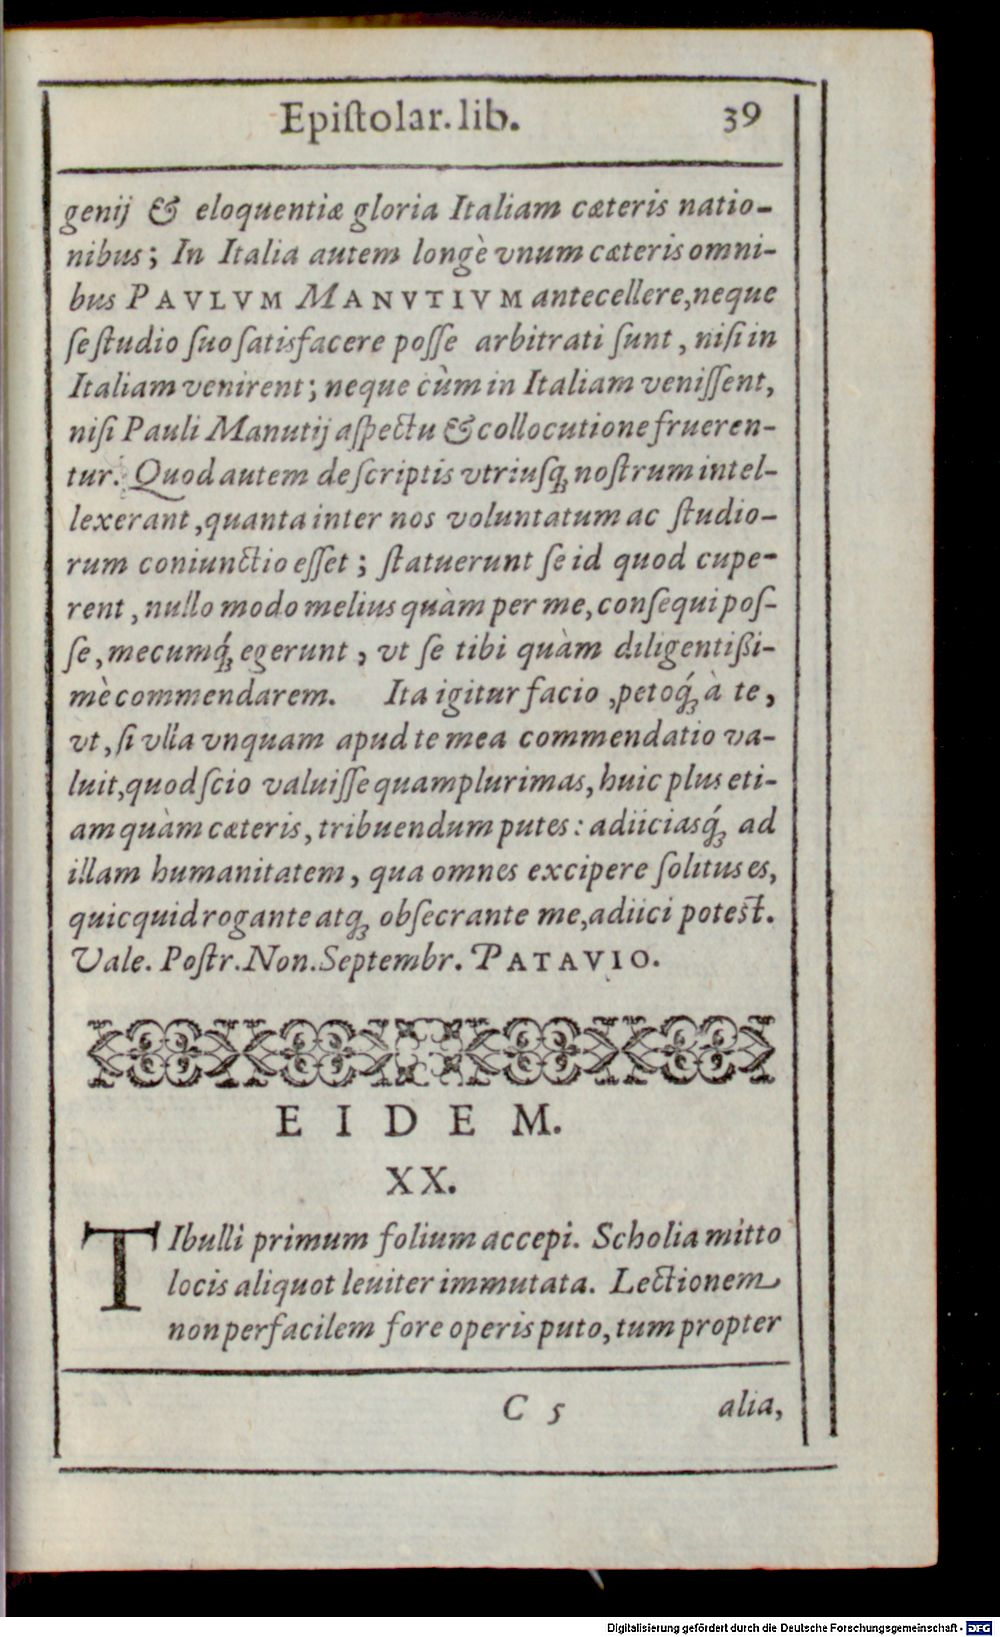 Epiſtolar. lib. 39
genij & eloquentiæ gloria Italiam cæteris natio-
nibus; In Italia autem longè vnum cæteris omni-
bus PAVLVM MANVTIVM antecellere, neque
ſe ſtudio ſuo ſatisfacere poſſe arbitrati ſunt, niſi in
Italiam venirent; neque cùm in Italiam veniſſent,
niſi Pauli Manutij aſpectu & collocutione frueren-
tur. Quod autem de ſcriptis vtriuſq; noſtrum intel-
lexerant, quanta inter nos voluntatum ac ſtudio-
rum coniunctio eſſet; ſtatuerunt ſe id quod cupe-
rent, nullo modo melius quàm per me, conſequi poſ-
ſe, mecumq́; egerunt, vt ſe tibi quàm diligentißi-
mè commendarem. Ita igitur facio, petoq́; à te,
vt, ſi vlla vnquam apud te mea commendatio va-
luit, quod ſcio valuiſſe quamplurimas, huic plus eti-
am quàm cæteris, tribuendum putes: adiiciasq́; ad
illam humanitatem, qua omnes excipere ſolitus es,
quicquid rogante atq; obſecrante me, adiici poteſt.
Vale. Poſtr. Non. Septembr. PATAVIO.
EIDEM.
XX.
TIbulli primum folium accepi. Scholia mitto
locis aliquot leuiter immutata. Lectionem
non perfacilem fore operis puto, tum propter
C 5 alia,
Digitalisierung gefördert durch die Deutsche Forschungsgemeinschaft - DFG